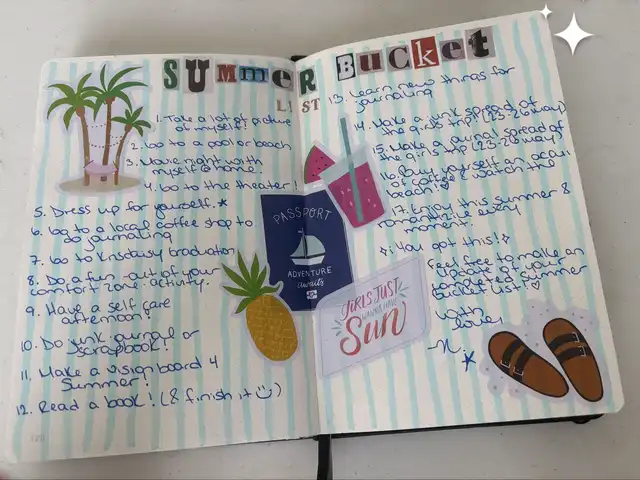 SUMMER BUCKET
LIST
1. Take a lot of picture
of myself!
2. Go to a pool or beach
3. Movie night with
myself @ home.
4. Go to the theater!
5. Dress up for yourself.
6. Go to a local coffee shop to
do journaling
7. Go to graduation
8. Do a fun out of your
comfort zone activity.
9. Have a self care
afternoon!
10. Do junk journal or
scrapbook!
11. Make a vision board 4
Summer!
12. Read a book! (& finish it
PASSPORT
ADVENTURE
awaits
GIRLS JUST
WANNA HAVE
Sun
13. Learn new things for
journaling
14. Make a junk spread of
the girls trip! (23-26 May)
15. Make a spread of
the girls trip! (23-26 May)
16. Buy yourself an
of coffee & watch the
ocean!
17. Enjoy this summer &
every
moment.
You got this!
Feel free to make an
update of your
completed summer
bucket list!
With
love,
~N.